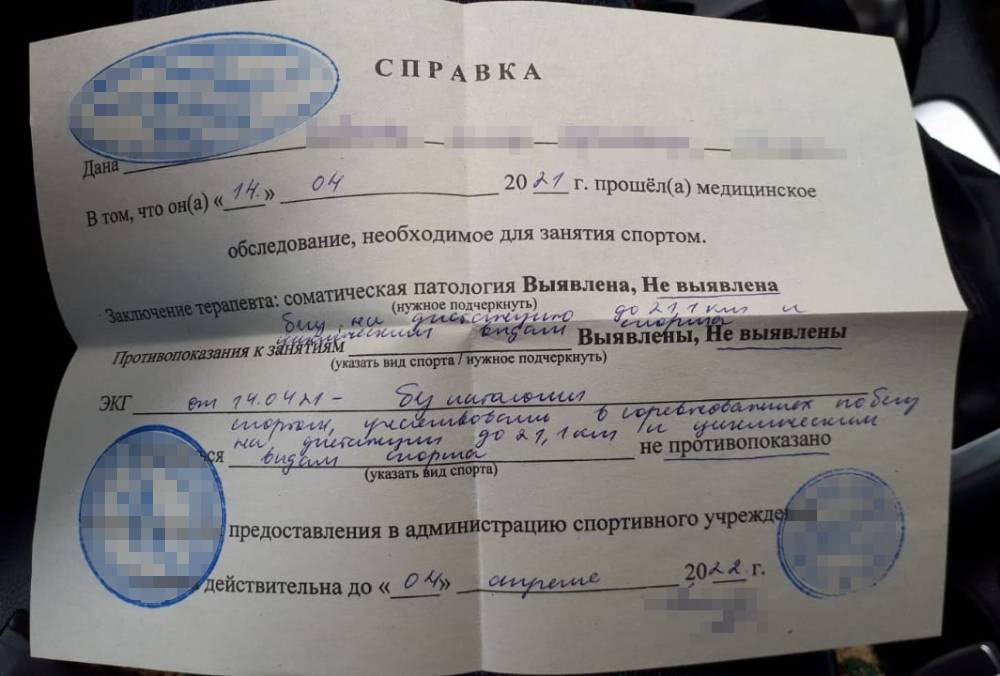 СПРАВКА
Дана
В том, что он(а) «14.» 04 2021 г. прошёл(а) медицинское
обследование, необходимое для занятия спортом.
Заключение терапевта: соматическая патология Выявлена, Не выявлена
(нужное подчеркнуть)
бегу на дистанцию до 21,1 км и
циклическим видам спорта
Противопоказания к занятиям Выявлены, Не выявлены
(указать вид спорта / нужное подчеркнуть)
ЭКГ от 14.04.21 - без патологии
спортом, участвовать в соревнованиях по бегу
на дистанции до 21,1 км и циклическим
ся видам спорта не противопоказано
(указать вид спорта)
предоставления в администрацию спортивного учрежде
действительна до «04» апреле 2022 г.